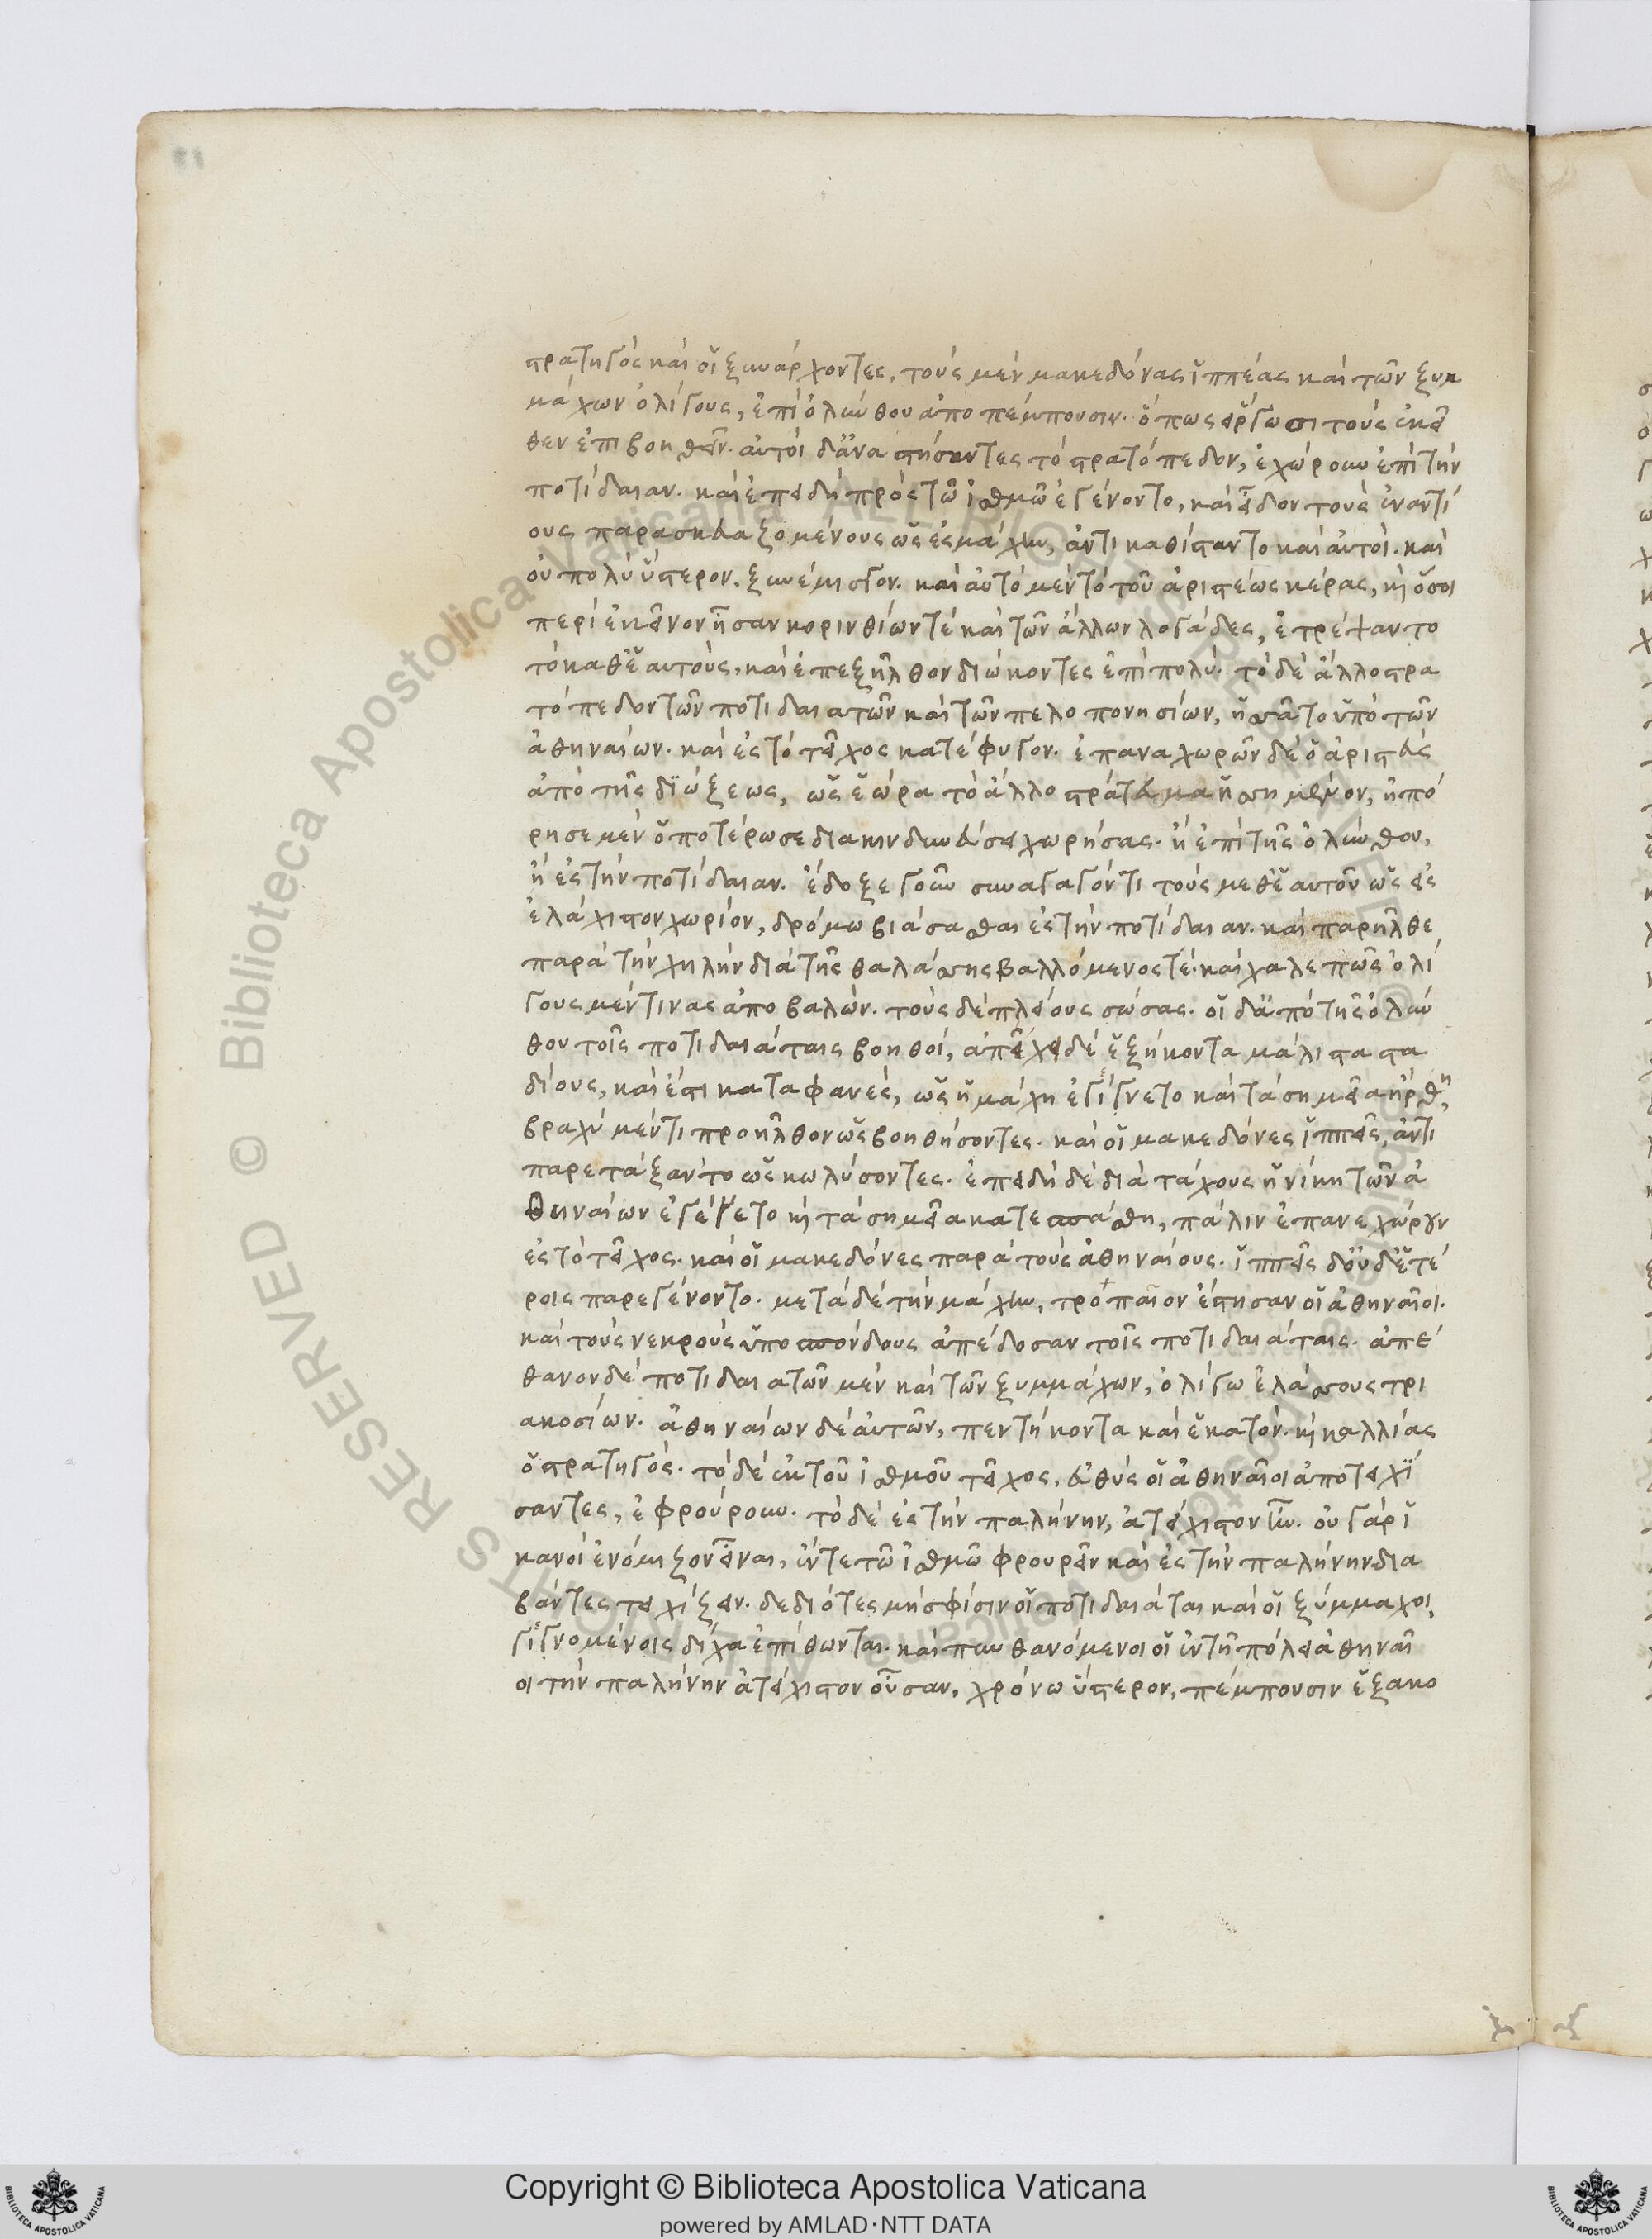 στρατηγὸς καὶ οἱ ξυνάρχοντες, τοὺς μὲν μακεδόνας ἱππέας καὶ τῶν ξυμ
μάχων ὀλίγους, ἐπὶ ὀλύνθου ἀποπέμπουσιν. ὅπως εἴργωσι τοὺς ἐκεῖ
θεν ἐπιβοηθεῖν. αὐτοὶ δ' ἀναστήσαντες τὸ στρατόπεδον, ἐχώρουν ἐπὶ τὴν
ποτίδαιαν. καὶ ἐπειδὴ πρὸς τῶ ἰσθμῶ ἐγένοντο, καὶ εἶδον τοὺς ἐναντί
ους παρασκευαζομένους ὡς ἐς μάχην, ἀντικαθίσταντο καὶ αὐτοί. καὶ
οὐ πολὺ ὕστερον, ξυνέμισγον. καὶ αὐτὸ μὲν τὸ τοῦ ἀριστέως κέρας, κὶ ὅσοι
περὶ ἐκεῖνον ἦσαν κορινθίων τὲ καὶ τῶν ἄλλων λογάδες, ἔτρεψαν το
τὸ καθ' ἑαυτοὺς, καὶ ἐπεξῆλθον διώκοντες ἐπὶ πολύ. τὸ δὲ ἄλλο στρα
τόπεδον τῶν ποτιδαιατῶν καὶ τῶν πελοπονησίων, ἡσσᾶτο ὑπὸ τῶν
ἀθηναίων. καὶ ἐς τὸ τεῖχος κατέφυγον. ἐπαναχωρῶν δὲ ὁ ἀριστεὺς
ἀπὸ τῆς διώξεως, ὡς ἑώρα τὸ ἄλλο στράτευμα ἡσσημένον, ἠπό
ρησε μὲν ὁποτέρωσε διακινδυνεύσει χωρήσας. ἢ ἐπὶ τῆς ὀλύνθου,
ἢ ἐς τὴν ποτίδαιαν. ἔδοξε γοῦν συναγαγόντι τοὺς μεθ' ἑαυτοῦ ὡς εἰς
ἐλάχιστον χωρίον, δρόμω βιάσασθαι ἐς τὴν ποτίδαιαν. καὶ παρῆλθε
παρὰ τὴν χηλὴν διὰ τῆς θαλάσσης βαλλόμενός τέ. καὶ χαλεπῶς ὀλί
γους μέν τινας ἀποβαλών. τοὺς δὲ πλείους σώσας. οἱ δ' ἀπὸ τῆς ὀλύν
θου τοῖς ποτιδαιάταις βοηθοί, ἀπεῖχε δὲ ἑξήκοντα μάλιστα στα
δίους, καὶ ἔστι καταφανές, ὡς ἡ μάχη ἐγίγνετο καὶ τὰ σημεῖα ἤρθη,
βραχὺ μέν τι προῆλθον ὡς βοηθήσοντες. καὶ οἱ μακεδόνες ἱππεῖς, ἀντι
παρετάξαντο ὡς κωλύσοντες. ἐπειδὴ δὲ διὰ τάχους ἡ νίκη τῶν ἀ
θηναίων ἐγένετο κὶ τὰ σημεῖα κατεσπάσθη, πάλιν ἐπανεχώρουν
ἐς τὸ τεῖχος. καὶ οἱ μακεδόνες παρὰ τοὺς ἀθηναίους. ἱππεῖς δ' οὐδετέ
ροις παρεγένοντο. μετὰ δὲ τὴν μάχην, τρόπαιον ἔστησαν οἱ ἀθηναῖοι.
καὶ τοὺς νεκροὺς ὑποσπόνδους ἀπέδοσαν τοῖς ποτιδαιάταις. ἀπέ
θανον δὲ ποτιδαιατῶν μὲν καὶ τῶν ξυμμάχων, ὀλίγω ἐλάσσους τρι
ακοσίων. ἀθηναίων δὲ αὐτῶν, πεντήκοντα καὶ ἑκατόν. κὶ καλλίας
ὁ στρατηγός. τὸ δὲ ἐκ τοῦ ἰσθμοῦ τεῖχος, εὐθὺς οἱ ἀθηναῖοι ἀποτειχί
σαντες, ἐφρούρουν. τὸ δὲ ἐς τὴν παλήνην, ἀτείχιστον ἦν. οὐ γὰρ ἱ
κανοὶ ἐνόμιζον εἶναι, ἔν τε τῶ ἰσθμῶ φρουρεῖν καὶ ἐς τὴν παλήνην δια
βάντες τειχίζειν. δεδιότες μὴ σφίσιν οἱ ποτιδαιάται καὶ οἱ ξύμμαχοι
γιγνομένοις δίχα ἐπίθωνται. καὶ πυνθανόμενοι οἱ ἐν τῆ πόλει ἀθηναῖ
οι τὴν παλήνην ἀτείχιστον οὖσαν, χρόνω ὕστερον, πέμπουσιν ἑξακο
Copyright © Biblioteca Apostolica Vaticana
powered by AMLAD·NTT DATA